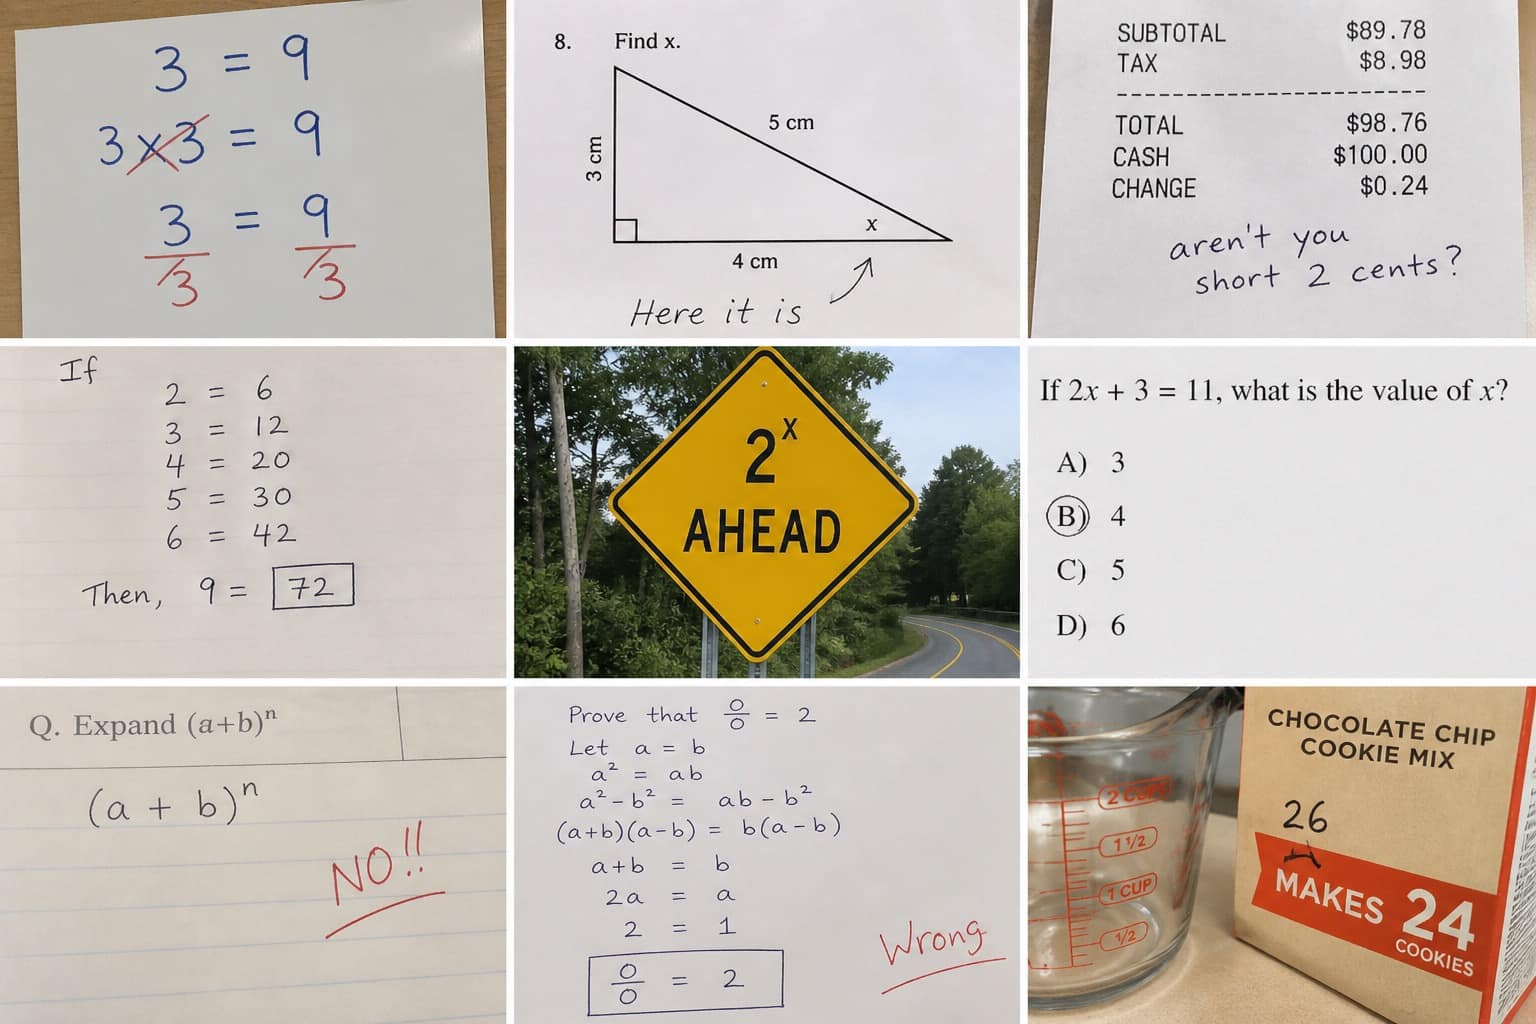 3 = 9
3 x 3 = 9
3 = 9
/3 /3
8. Find x.
5 cm
3 cm
x
4 cm
Here it is
SUBTOTAL $89.78
TAX $8.98
TOTAL $98.76
CASH $100.00
CHANGE $0.24
aren't you
short 2 cents?
If
2 = 6
3 = 12
4 = 20
5 = 30
6 = 42
Then, 9 = 72
2ˣ
AHEAD
If 2x + 3 = 11, what is the value of x?
A) 3
B) 4
C) 5
D) 6
Q. Expand (a+b)ⁿ
(a + b)ⁿ
NO!!
Prove that 0/0 = 2
Let a = b
a² = ab
a² - b² = ab - b²
(a+b)(a-b) = b(a-b)
a+b = b
2a = a
2 = 1
0/0 = 2
Wrong
2 CUPS
1 1/2
1 CUP
1/2
CHOCOLATE CHIP
COOKIE MIX
26
MAKES 24
COOKIES